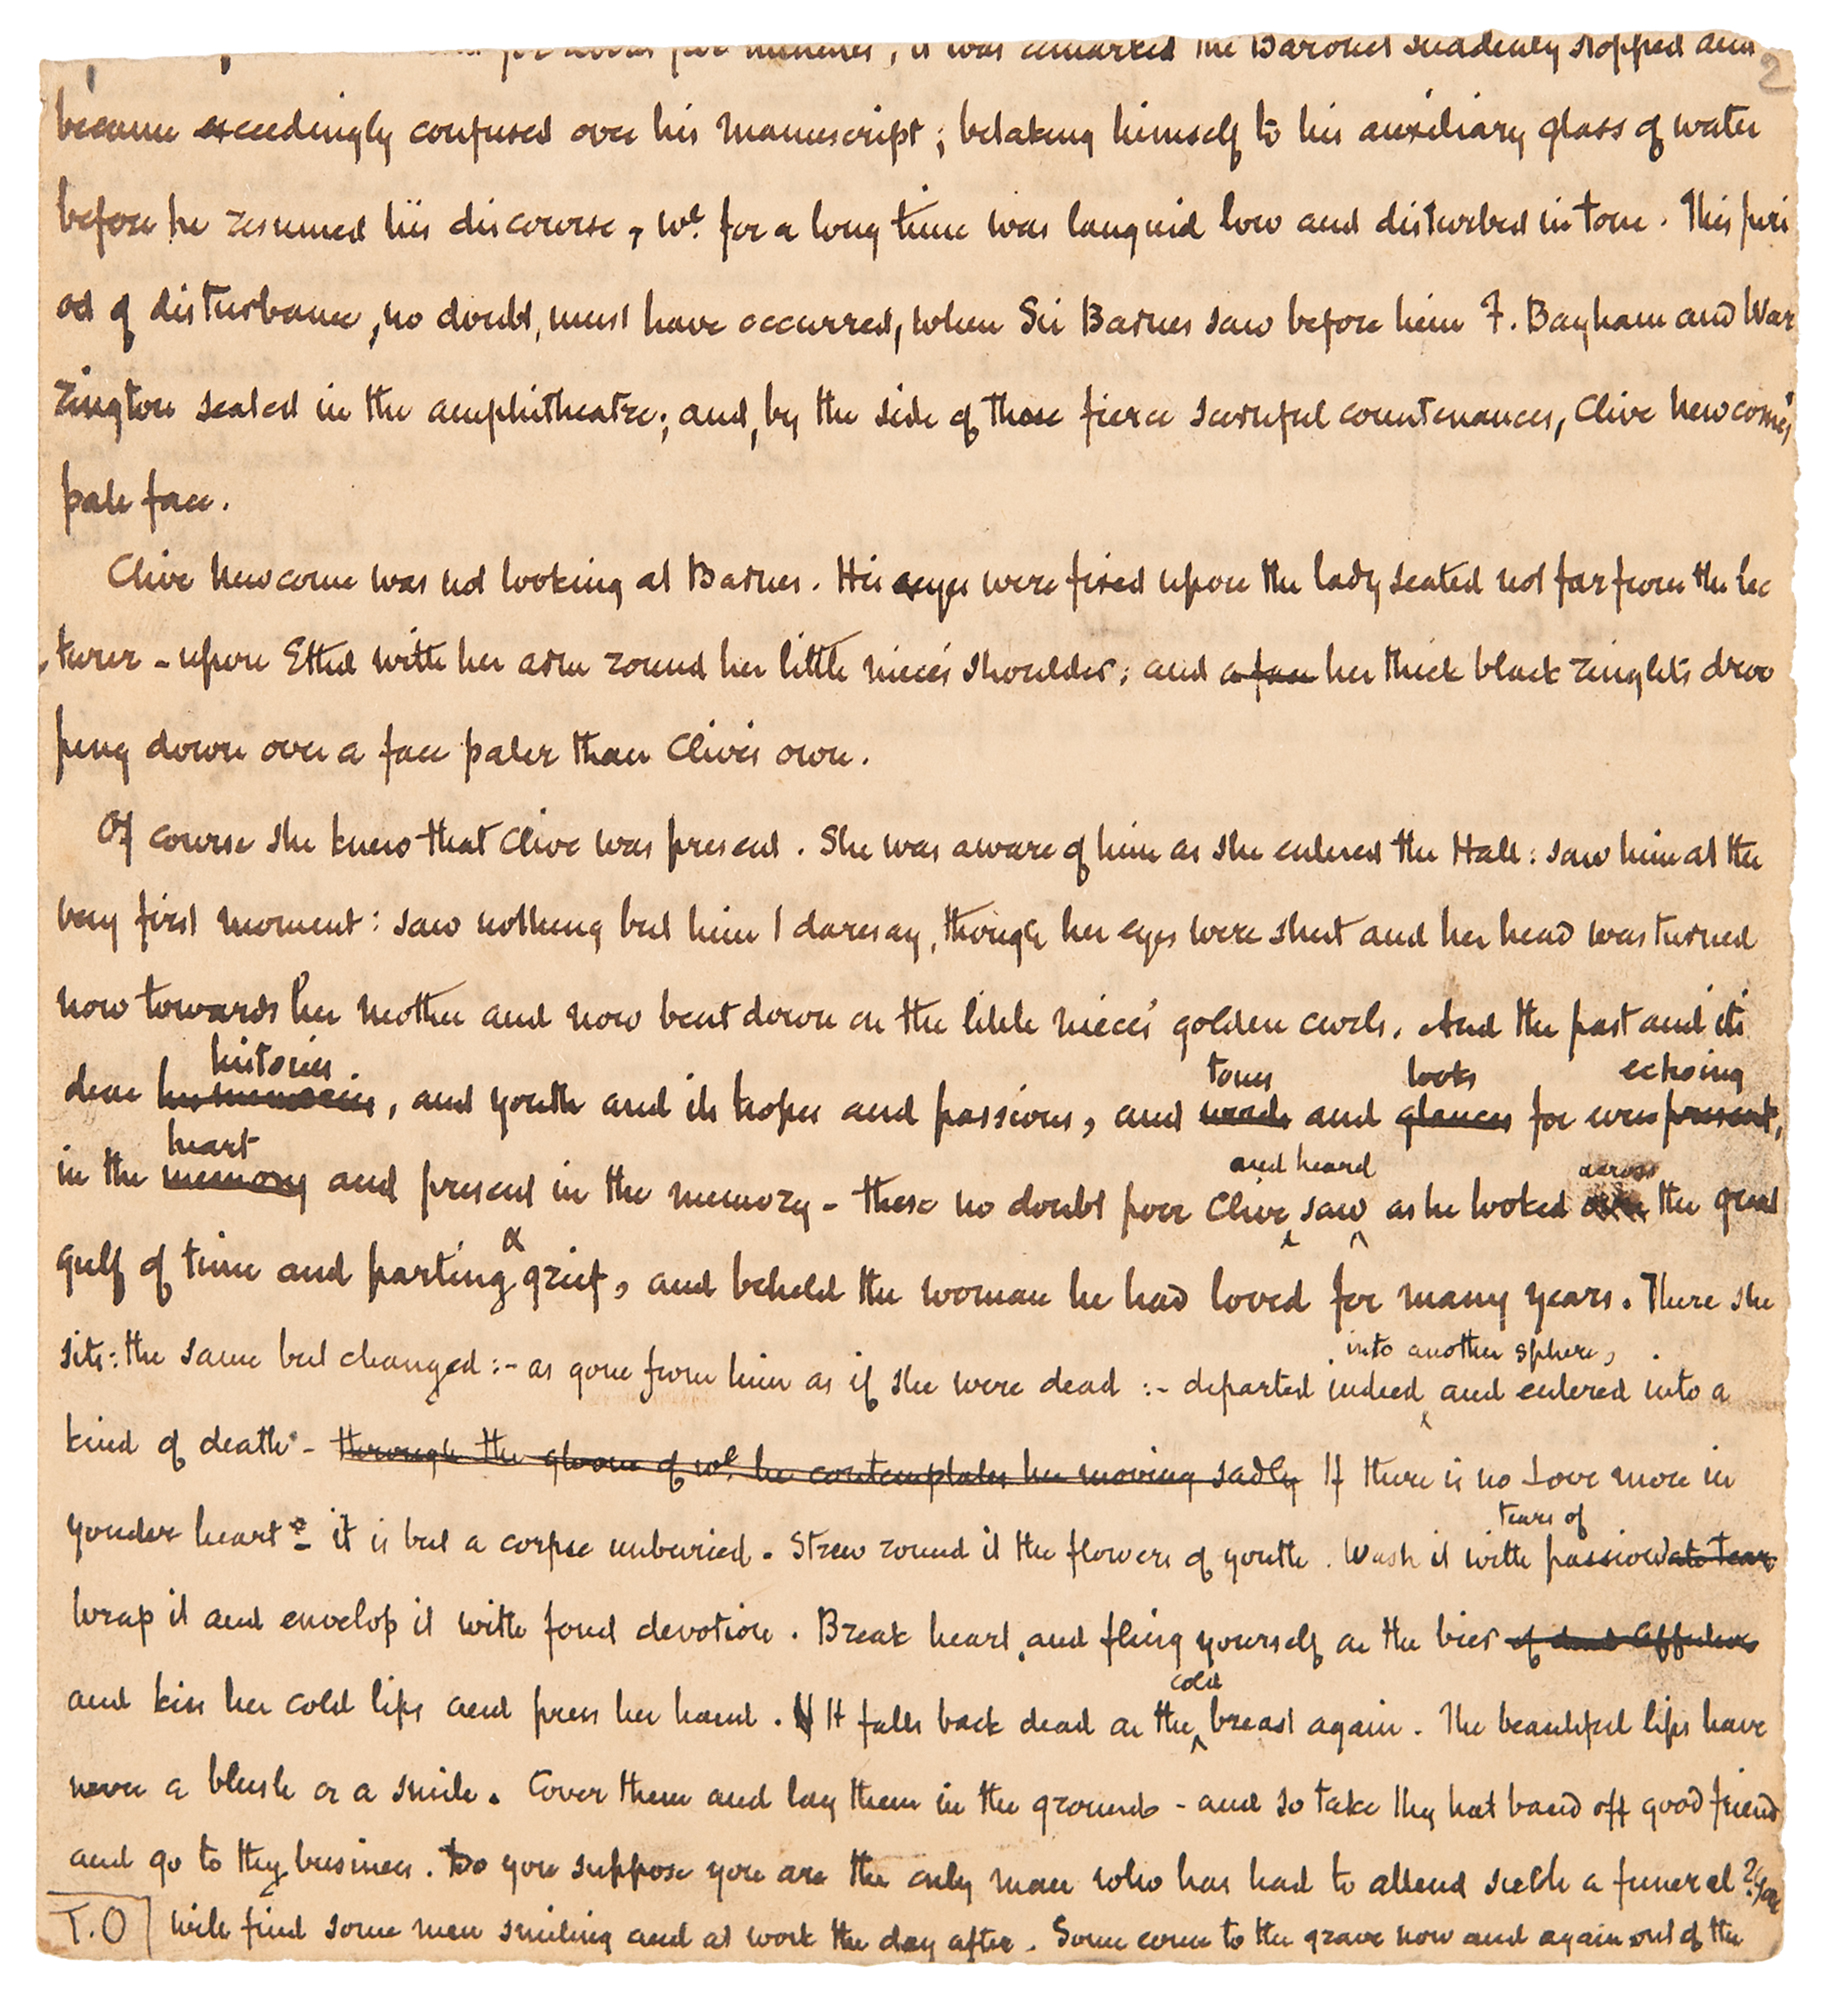 for about five minutes, it was remarked the Baronet suddenly stopped and
2
became exceedingly confused over his manuscript; betaking himself to his auxiliary glass of water
before he resumed his discourse, wh. for a long time was languid low and disturbed in tone. This peri
od of disturbance, no doubt, must have occurred, when Sir Barnes saw before him F. Bayham and War
rington seated in the amphitheatre; and, by the side of those fierce scornful countenances, Clive Newcome's
pale face.
Clive Newcome was not looking at Barnes. His eyes were fixed upon the lady seated not far from the lec
turer - upon Ethel with her arm round her little niece's shoulder; and a face her thick black ringlets droo
ping down over a face paler than Clive's own.
Of course she knew that Clive was present. She was aware of him as she entered the Hall: saw him at the
very first moment: saw nothing but him I daresay, though her eyes were shut and her head was turned
now towards her mother and now bent down on the little niece's golden curls. And the past and its
histories tones looks echoing
dear memories, and youth and its hopes and passions, and words and glances for ever present,
heart and heard across
in the memory and present in the memory - these no doubt poor Clive saw as he looked over the great
gulf of time and parting & grief, and beheld the woman he had loved for many years. There she
into another sphere,
sits: the same but changed :- as gone from him as if she were dead :- departed indeed and entered into a
kind of death - through the gloom of wh. he contemplates her moving sadly If there is no Love more in
tears of
yonder heart it is but a corpse unburied. Strew round it the flowers of youth. Wash it with passionate tears
Wrap it and envelop it with fond devotion. Break heart, and fling yourself on the bier of dead affection
cold
and kiss her cold lips and press her hand. It falls back dead on the breast again. The beautiful lips have
never a blush or a smile. Cover them and lay them in the ground - and so take thy hat band off good friend
and go to thy business. Do you suppose you are the only man who has had to attend such a funeral? You
T.O will find some men smiling and at work the day after. Some come to the grave now and again out of the